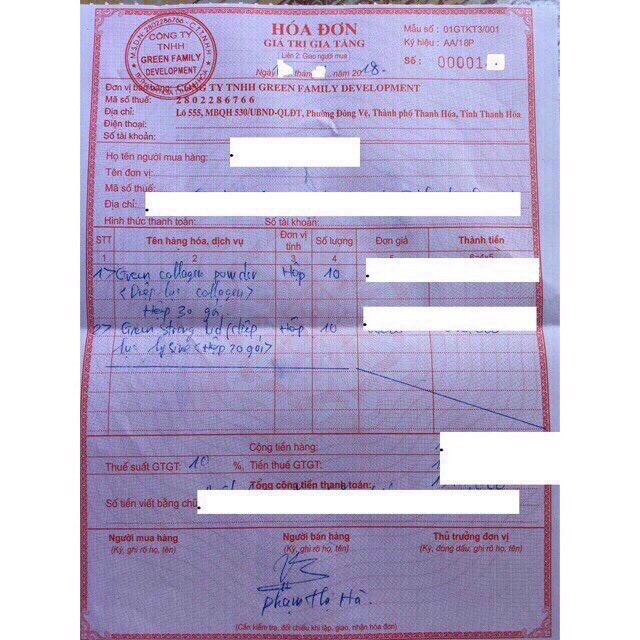 HÓA ĐƠN
GIÁ TRỊ GIA TĂNG
Liên 2: Giao người mua
Ngày thán năm 2018
Mẫu số : 01GTKT3/001
Ký hiệu : AA/18P
Số : 00001
M.S.D.N: 2802286766 - C.T.T.N.H.H
CÔNG TY
TNHH
GREEN FAMILY
DEVELOPMENT
Đơn vị bán hàng: CÔNG TY TNHH GREEN FAMILY DEVELOPMENT
Mã số thuế: 2802286766
Địa chỉ: Lô 555, MBQH 530/UBND-QLĐT, Phường Đông Vệ, Thành phố Thanh Hóa, Tỉnh Thanh Hóa
Điện thoại:
Số tài khoản:
Họ tên người mua hàng:
Tên đơn vị:
Mã số thuế:
Địa chỉ:
Hình thức thanh toán: Số tài khoản:
STT Tên hàng hóa, dịch vụ Đơn vị tính Số lượng Đơn giá Thành tiền
1 2 3 4 5 6=4x5
1> Green collagen powder Hộp 10
<Diệp lục collagen>
Hộp 30 gói
2> Green strong kid (diệp Hộp 10
lục lysine <Hộp 20 gói>
Cộng tiền hàng:
Thuế suất GTGT: 10 %, Tiền thuế GTGT:
Tổng cộng tiền thanh toán:
Số tiền viết bằng chữ
Người mua hàng Người bán hàng Thủ trưởng đơn vị
(Ký, ghi rõ họ, tên) (Ký, ghi rõ họ, tên) (Ký, đóng dấu, ghi rõ họ, tên)
Phạm Thị Hà.
(Cần kiểm tra, đối chiếu khi lập, giao, nhận hóa đơn)